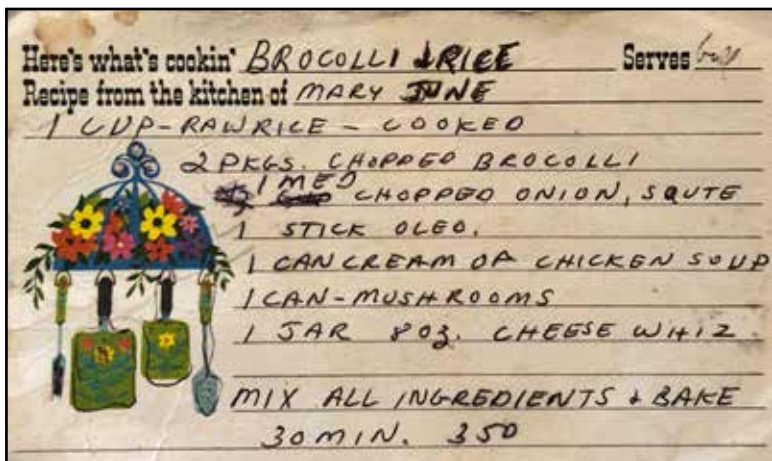 Here's what's cookin' BROCOLLI & RICE Serves
Recipe from the kitchen of MARY JUNE
1 CUP-RAW RICE - COOKED
2 PKGS. CHOPPED BROCOLLI
1 MED
CHOPPED ONION, SAUTE
1 STICK OLEO.
1 CAN CREAM OF CHICKEN SOUP
1 CAN-MUSHROOMS
1 JAR 8 oz. CHEESE WHIZ
MIX ALL INGREDIENTS & BAKE
30 MIN. 350